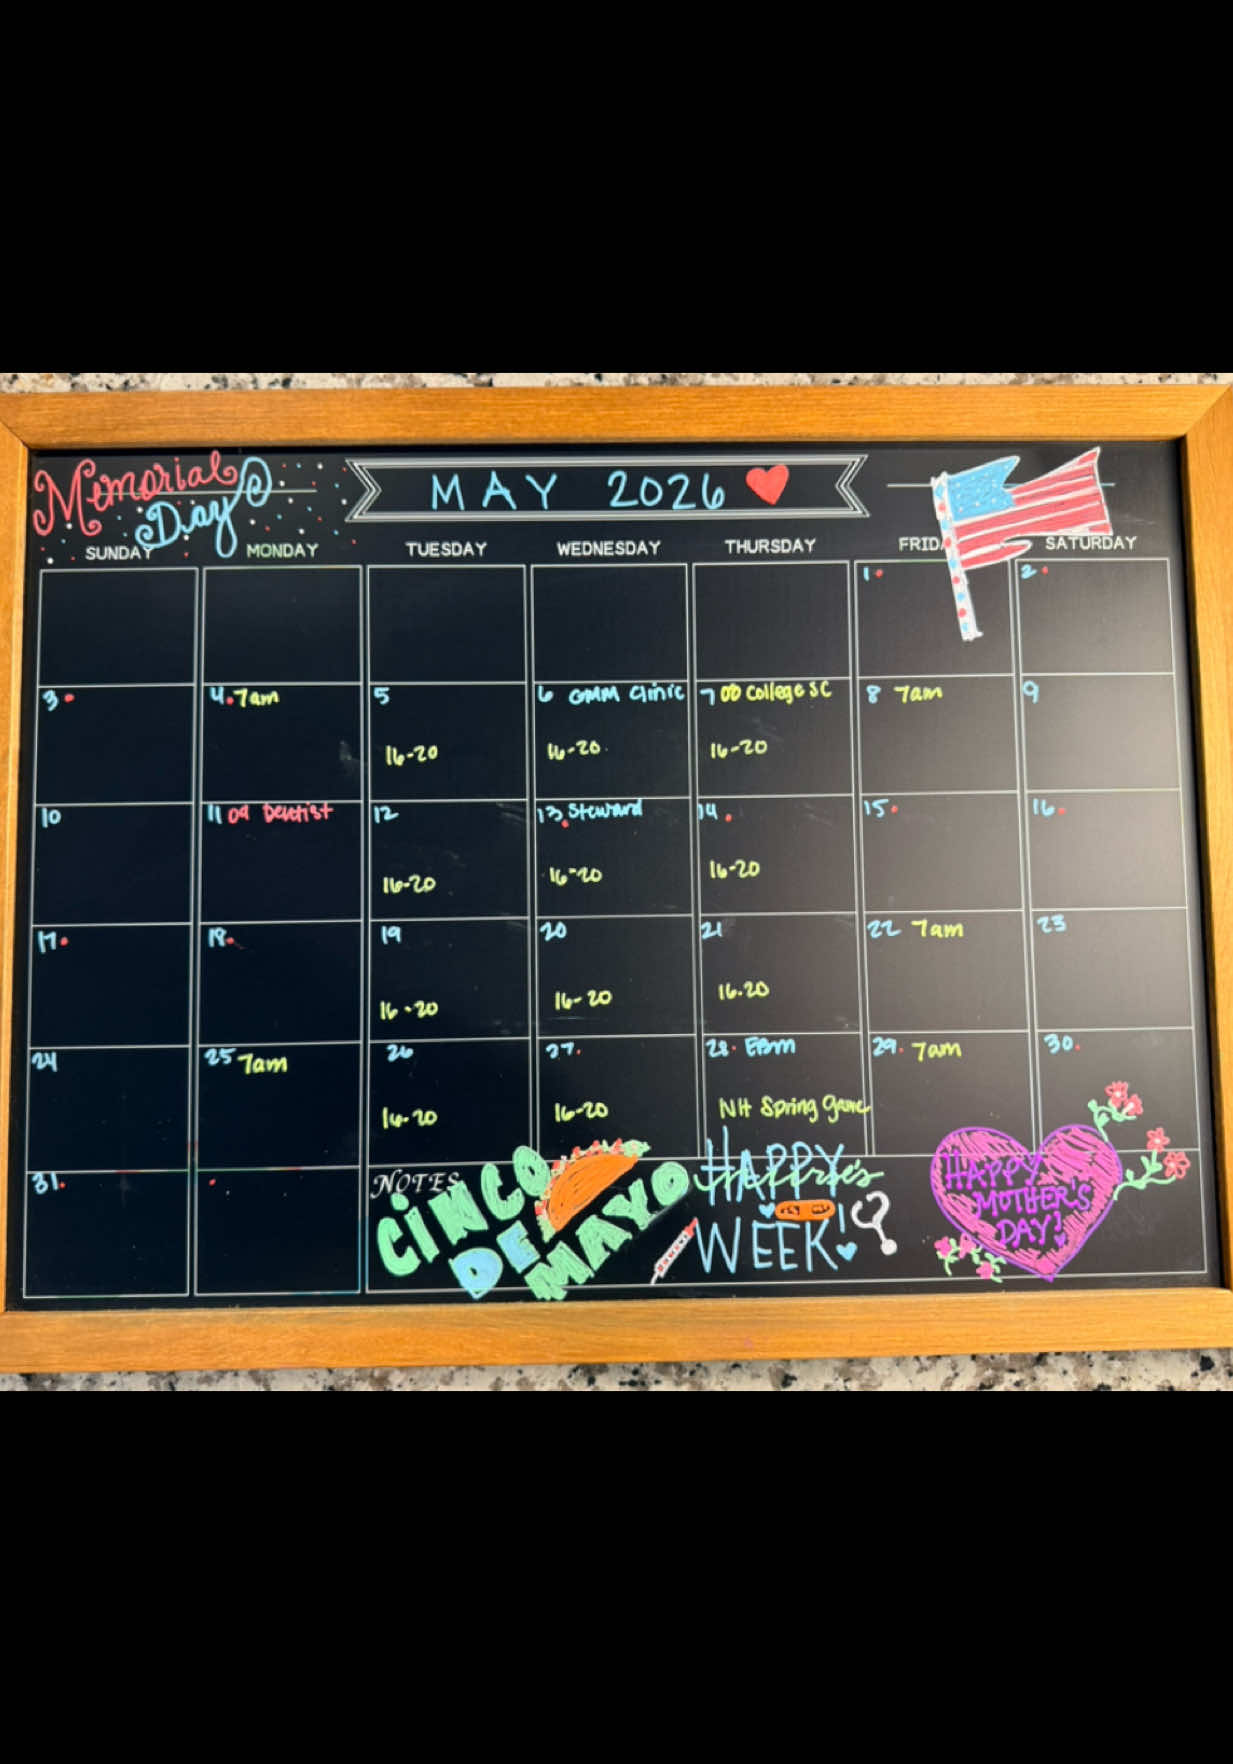 Memorial
Day
MAY 2026
SUNDAY MONDAY TUESDAY WEDNESDAY THURSDAY FRIDA SATURDAY
1 2
3 4 7am 5 6 GMM Clinic 7 OD College SC 8 7am 9
16-20 16-20 16-20
10 11 09 Dentist 12 13 Steward 14 15 16
16-20 16-20 16-20
17 18 19 20 21 22 7am 23
16-20 16-20 16-20
24 25 7am 26 27 28 EBM 29 7am 30
16-20 16-20 NH Spring Game
31
NOTES
CiNCO
DE
MAYO
HAPPY
WEEK!
HAPPY
MOTHER'S
DAY!